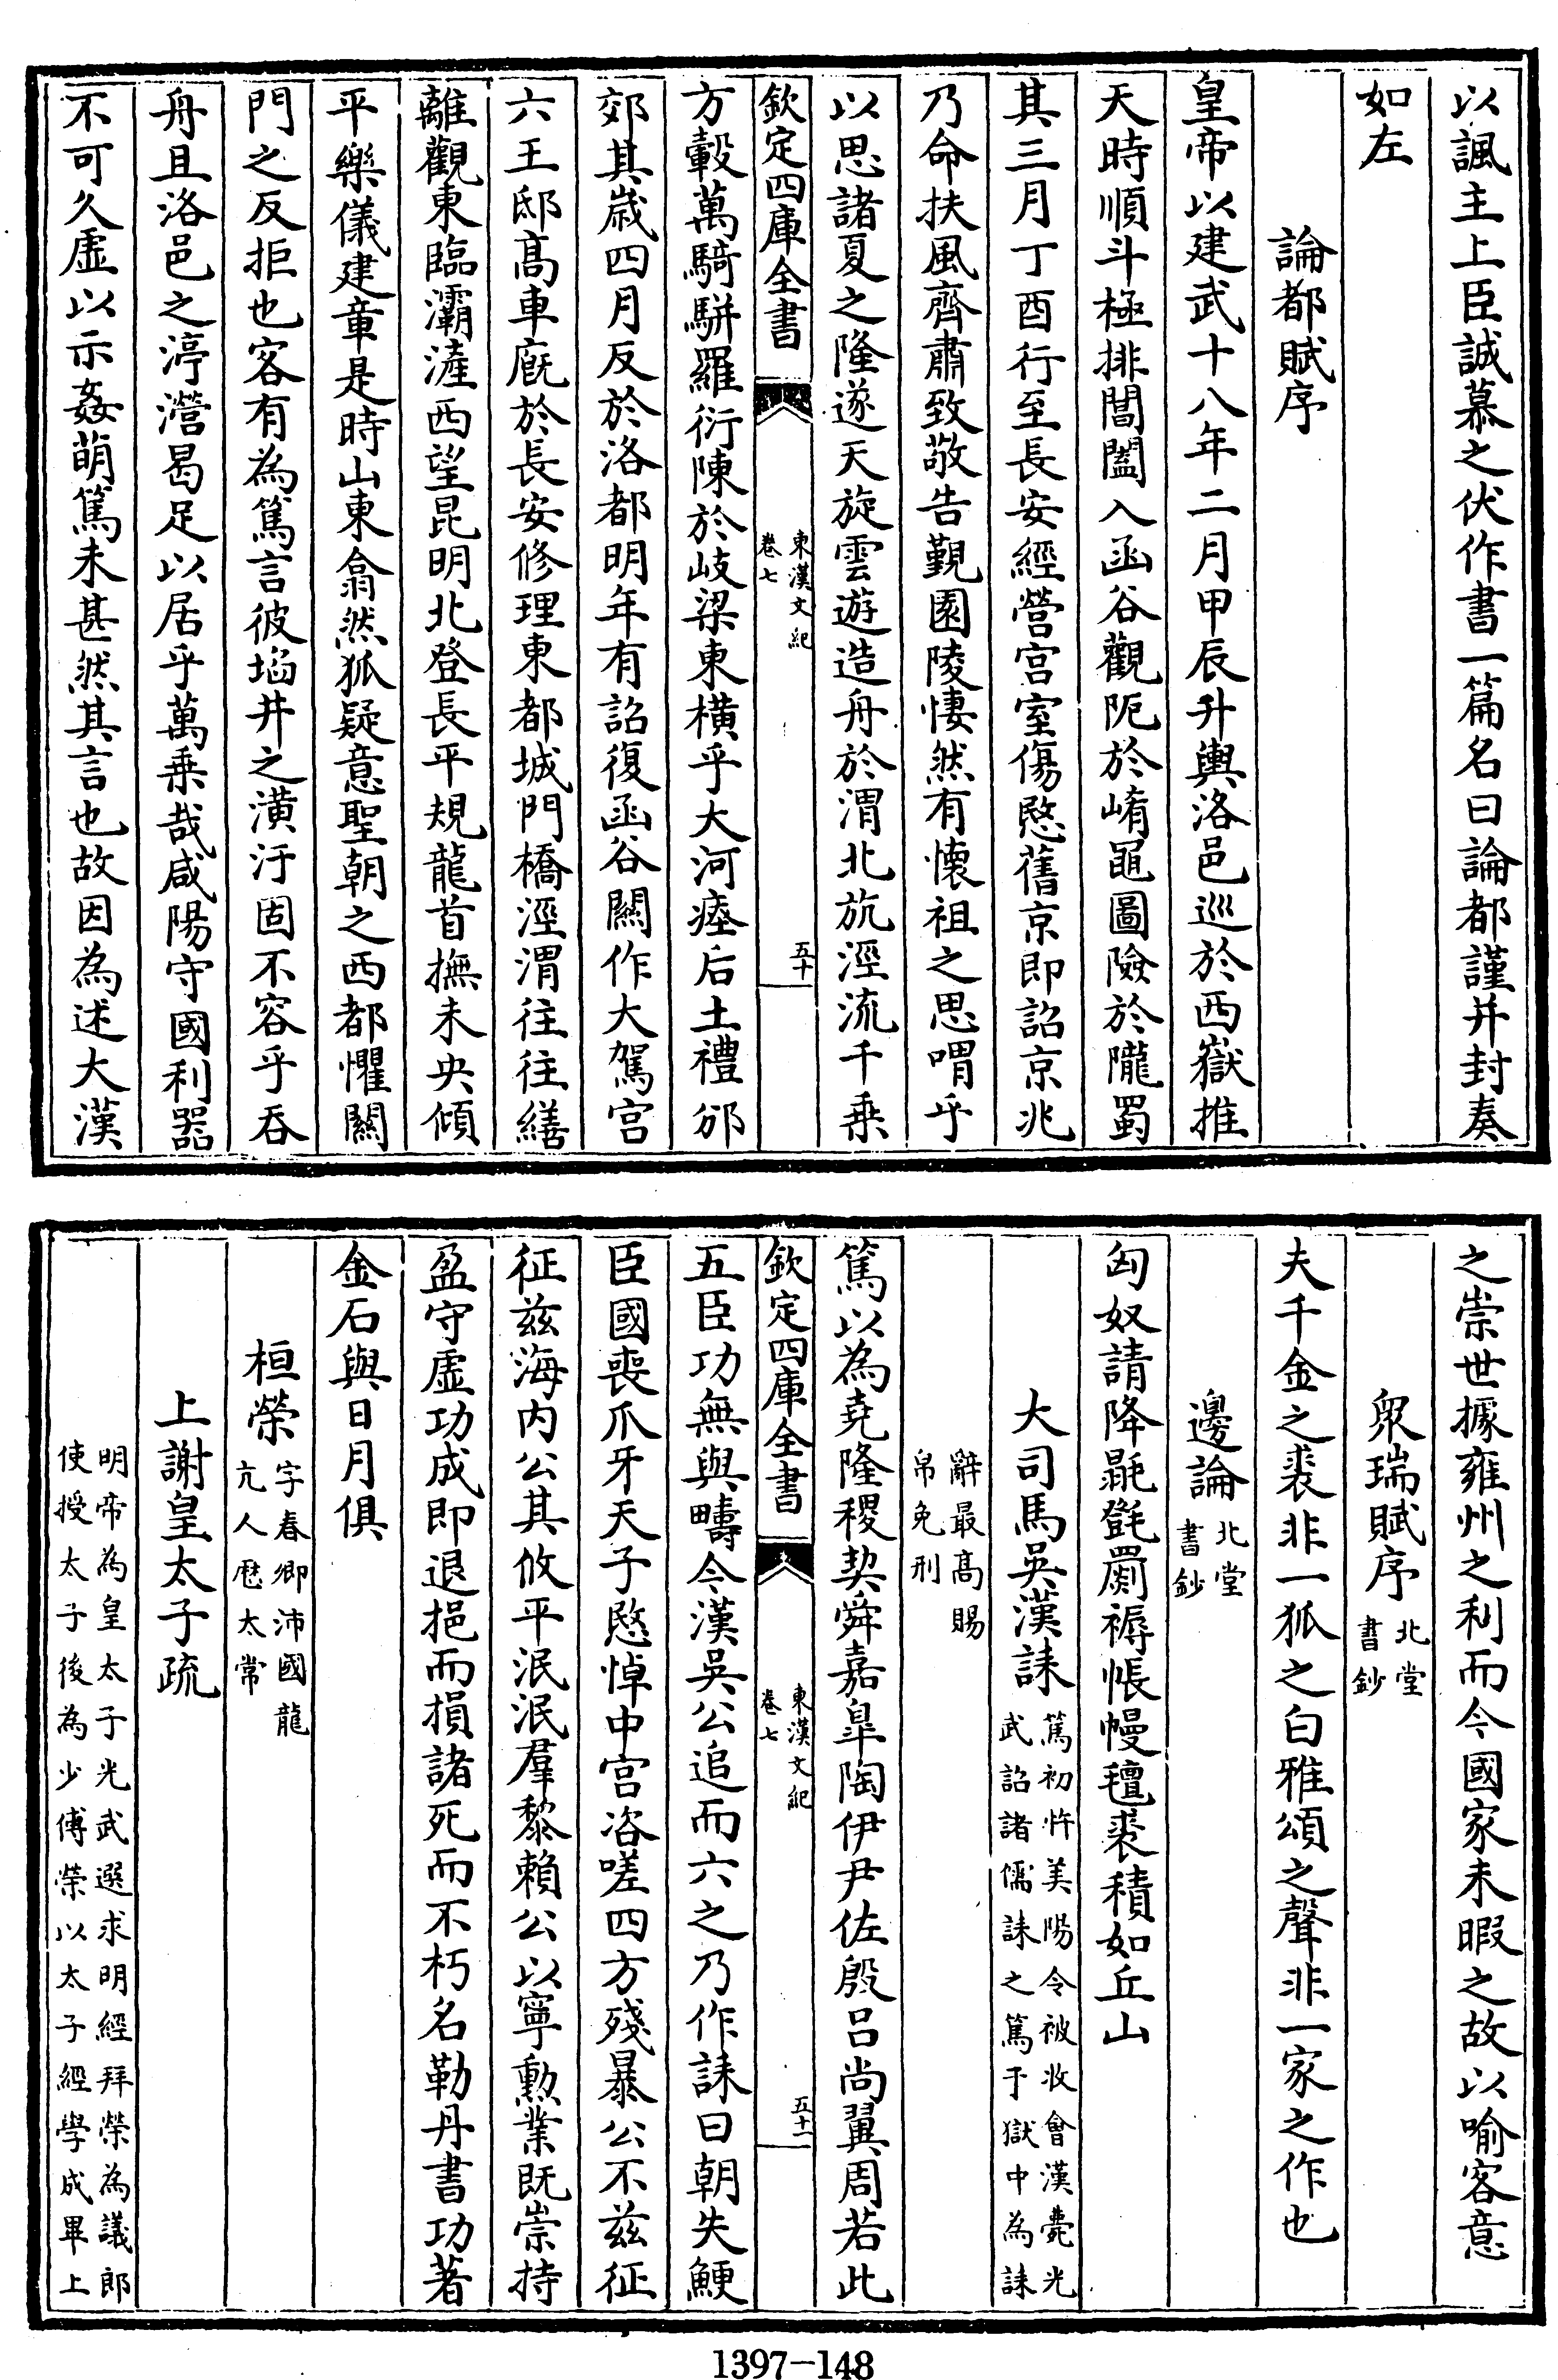 以諷主上臣誠慕之伏作書一篇名曰論都謹并封奏
如左
論都賦序
皇帝以建武十八年二月甲辰升輿洛邑巡於西嶽推
天時順斗極排閶闔入函谷觀阨於崤黽圖險於隴蜀
其三月丁酉行至長安經營宫室傷愍舊京即詔京兆
乃命扶風齊肅致敬告覲園陵悽然有懐祖之思喟乎
以思諸夏之隆遂天旋雲遊造舟於渭北斻涇流千乗
欽定四庫全書
東漢文紀
卷七
五十
方轂萬騎駢羅衍陳於岐梁東横乎大河瘞后土禮邠
郊其歳四月反於洛都明年有詔復函谷關作大駕宫
六王邸髙車廐於長安修理東都城門橋涇渭往往繕
離觀東臨灞滻西望昆明北登長平規龍首撫未央傾
平樂儀建章是時山東翕然狐疑意聖朝之西都懼關
門之反拒也客有為篤言彼埳井之潢汙固不容乎吞
舟且洛邑之渟瀯曷足以居乎萬乗哉咸陽守國利器
不可久虚以示姦萌篤未甚然其言也故因為述大漢
之崇世據雍州之利而今國家未暇之故以喻客意
衆瑞賦序北堂
書鈔
夫千金之裘非一狐之白雅頌之聲非一家之作也
邊論北堂
書鈔
匈奴請降毾㲪罽褥帳幔氊裘積如丘山
大司馬吳漢誄篤初忤美陽令被收會漢薨光
武詔諸儒誄之篤于獄中為誄
辭最髙賜
帛免刑
篤以為堯隆稷契舜嘉臯陶伊尹佐殷吕尚翼周若此
欽定四庫全書
東漢文紀
卷七
五十一
五臣功無與疇今漢吳公追而六之乃作誄曰朝失鯁
臣國喪爪牙天子愍悼中宫咨嗟四方殘暴公不兹征
征兹海内公其攸平泯泯羣黎賴公以寧勲業既崇持
盈守虚功成即退挹而損諸死而不朽名勒丹書功著
金石與日月俱
桓榮字春卿沛國龍
亢人厯太常
上謝皇太子疏
明帝為皇太子光武選求明經拜榮為議郎
使授太子後為少傅榮以太子經學成畢上
1397-148